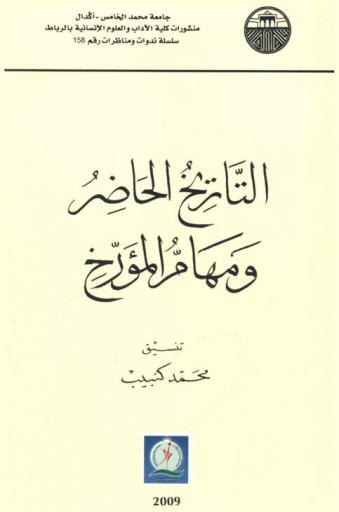 جامعة محمد الخامس - أكدال
منشورات كلية الآداب والعلوم الإنسانية بالرباط
سلسلة ندوات ومناظرات رقم 158
التَّارِيخُ الحَاضِرُ
وَمَهَامُّ المُؤَرِّخِ
تنسيق
محمد كنبيب
2009